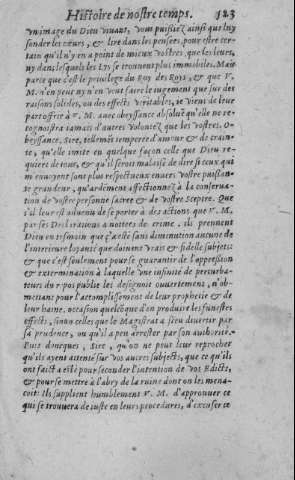 Histoire de nostre temps. 123
vn image du Dieu viuant, vous puissiez ainsi que luy
sonder les cœurs, & lire dans les pensees, pour estre cer-
tain qu'il n'y en a point de mieux vostres, que les leurs,
ny dans lesquels les Lys se trouuent plus immobiles. Mais
parce que c'est le priuilege du Roy des Roys, & que V.
M. n'en peut ny n'en veut faire le iugement que sur des
raisons solides, ou des effects veritables, ie viens de leur
part offrir à V. M. auec obeyssance absoluë qu'elle ne re-
cognoistra iamais d'autres volontez que les vostres. O-
beyssance, Sire, tellemẽt temperee d'amour & de crain-
te, qu'elle imite en quelque façon celle que Dieu re-
quiert de tous, & qu'il seroit malaisé de dire si ceux qui
m'enuoyent sont plus respectueux enuers vostre puissan-
te grandeur, qu'ardẽment affectionnez à la conserua-
tion de vostre personne sacree & de vostre Sceptre. Que
s'il leur est aduenu de se porter à des actions que V. M.
par ses Declarations a notees de crime, ils prennent
Dieu en tesmoin que ç'a esté sans diminution aucune de
l'interieure loyauté que doiuent vrais & fidelle subjets:
& que c'est seulement pour se guarantir de l'oppression
& extermination à laquelle vne infinité de perturba-
teurs du repos public les designoit ouuertement, n'ob-
mettans pour l'accomplissement de leur prophetie & de
leur haine, occasion quelcõque d'en produire les funestes
effects, sinon celles que le Magistrat a sceu diuertir par
sa prudence, ou qu'il a peu arrester par son authorité.
Puis doncques, Sire, qu'on ne peut leur reprocher
qu'ils ayent attenté sur vos autres subjects, que ce qu'ils
ont faict a esté pour seconder l'intention de vos Edicts,
& pour se mettre à l'abry de la ruine dont on les mena-
çoit: Ils supplient humblement V. M. d'approuuer ce
qui se trouuera de iuste en leurs procedures, d'excuser ce